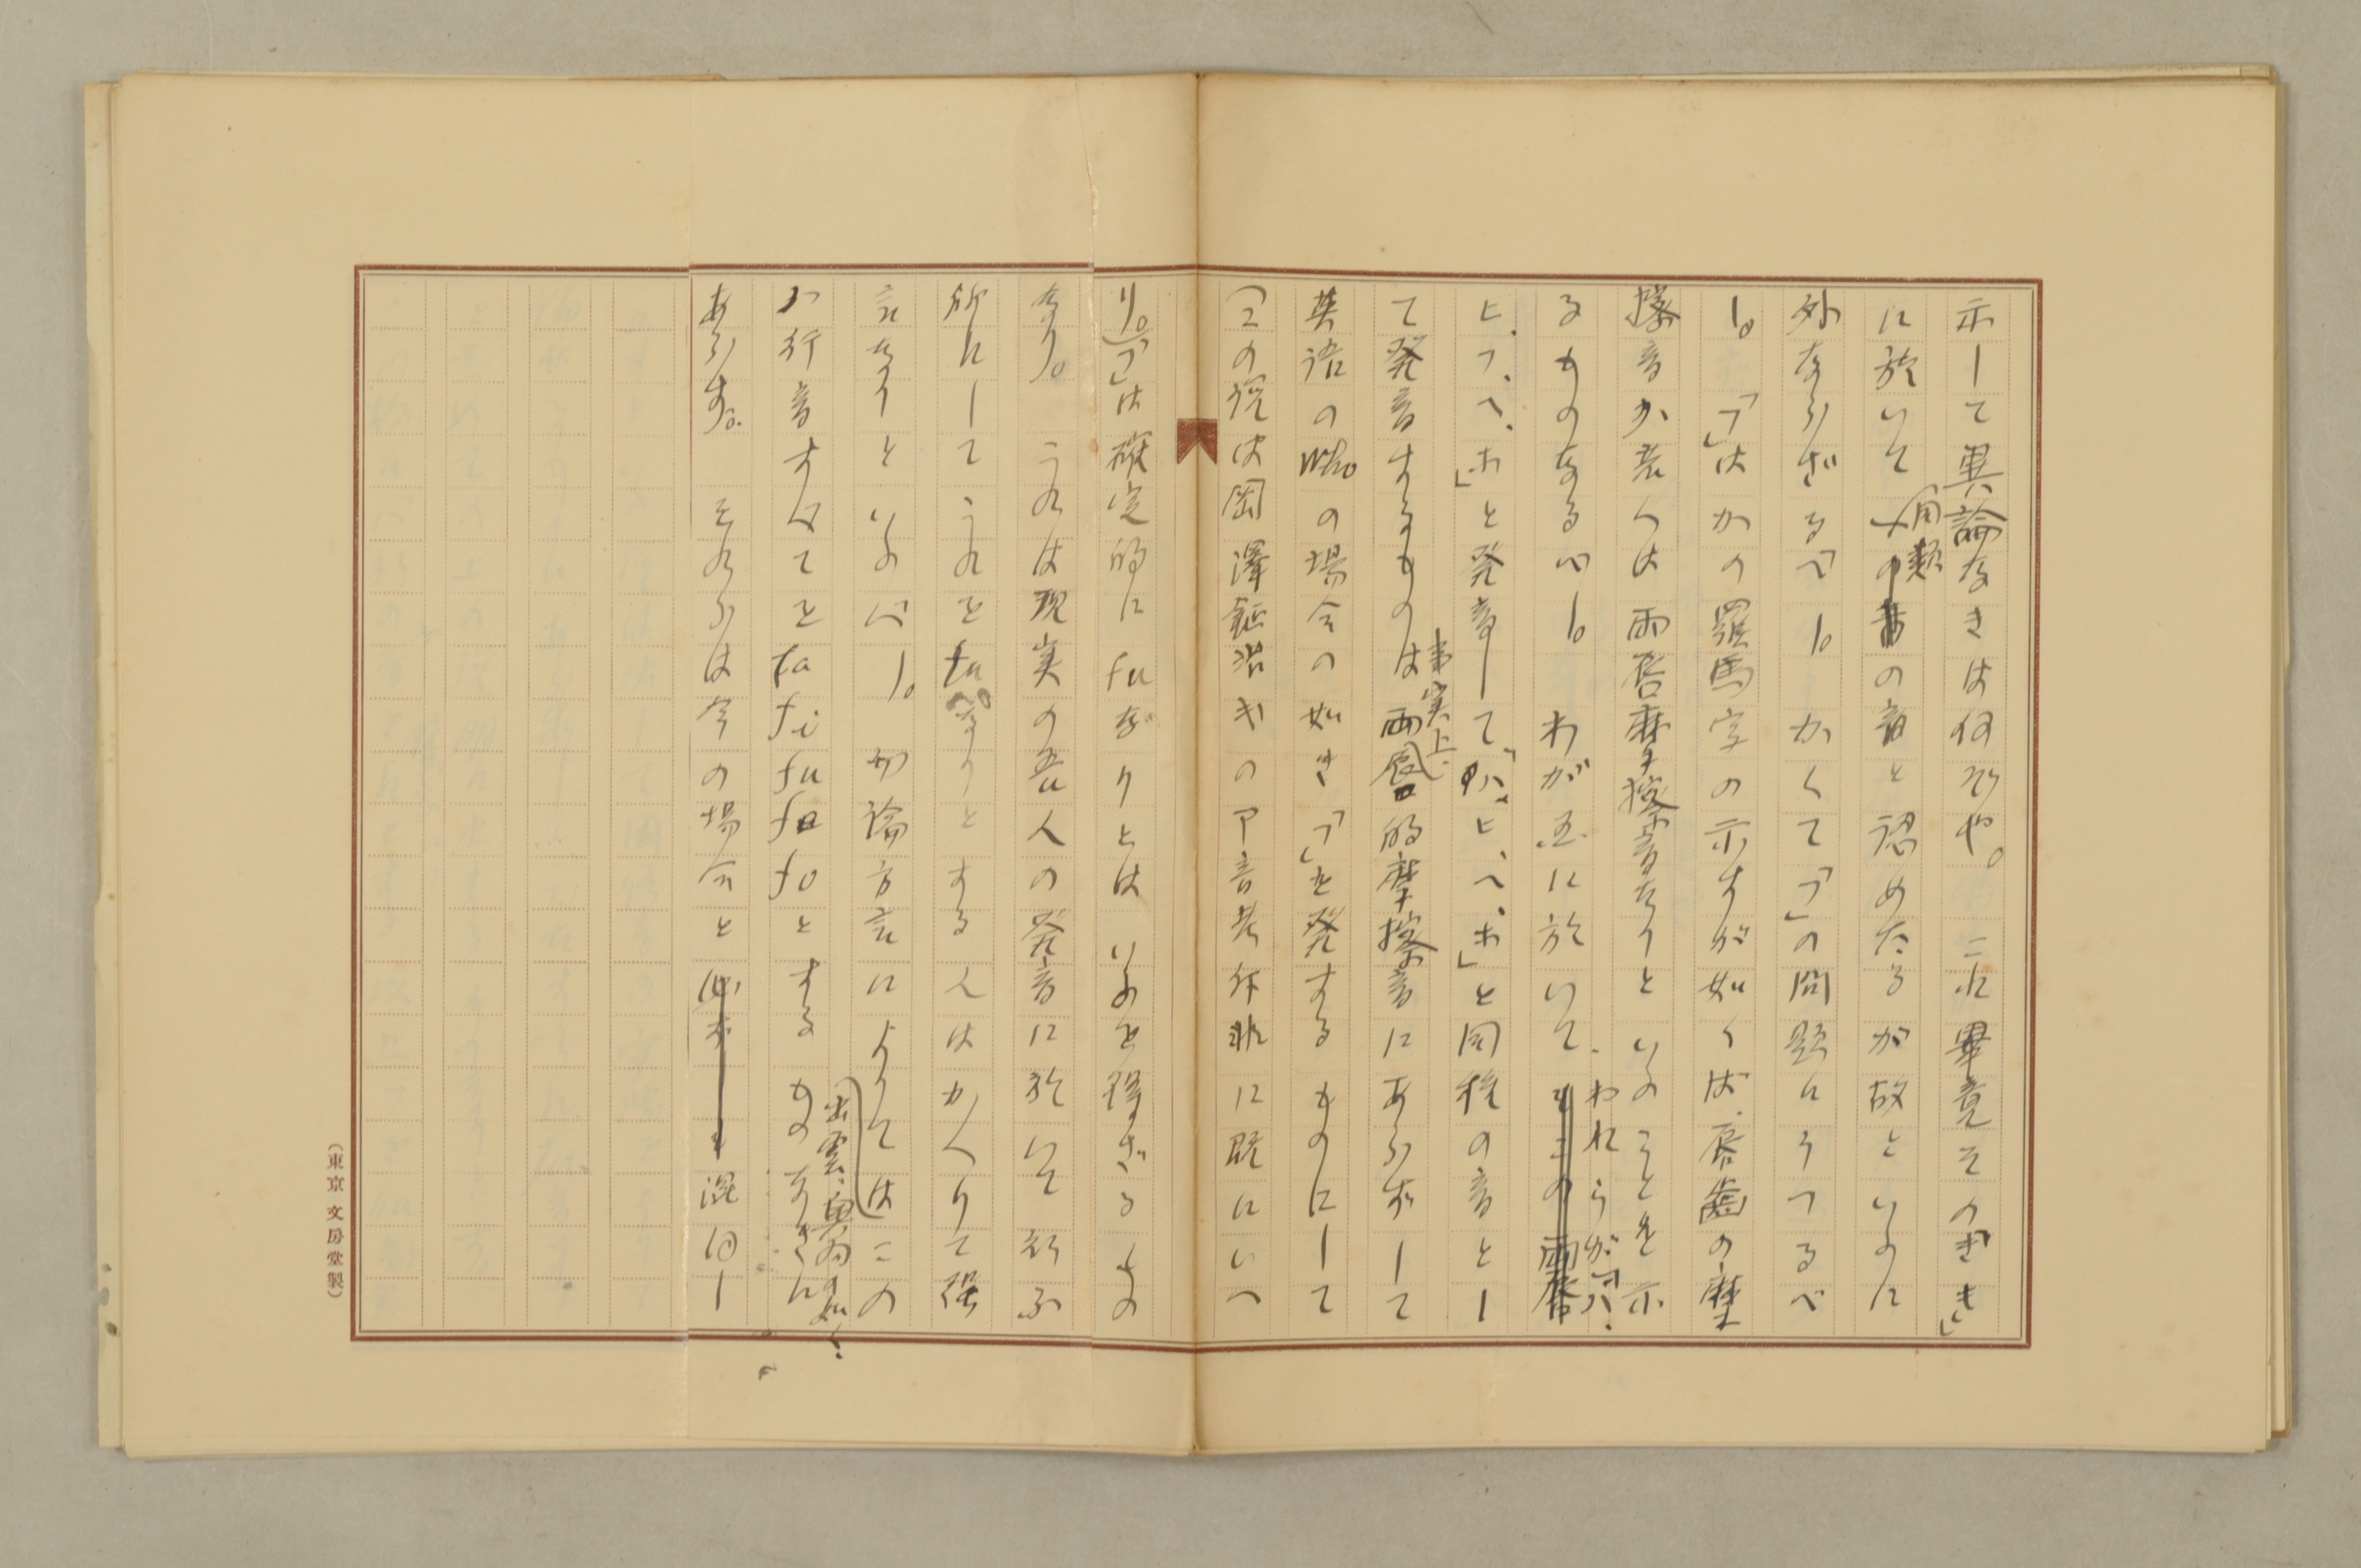 示して異論なきは何ぞや。これ畢竟その「きき」
に於いて同類の音と認めたるが故といふに
外ならざるべし。かくて「フ」の問題にうつるべ
し。「フ」はかの羅馬字の示すが如くば、唇歯の摩
擦音か若くは両唇摩擦音なりといふことを示
るものなるべし。わが国に於いて、われらが「ハ、
ヒ、フ、ヘ、ホ」と発音して「ハ、ヒ、ヘ、ホ」と同種の音とし
て発音するものは事実上、両唇的摩擦音にあらずして
英語のwhoの場合の如き「フ」を発するものにして
(この説は岡澤鉦治氏の
り。)「フ」は確定的にfuなりとはいふを得ざるもの
なり。これは現実の吾人の発音に於いて行ふ
所にしてこれをfuなりとする人はかへりて
言なりといふべし。勿論方言によりては出雲、奥羽の如く、この
ハ行音すべてをfa fi fu fe foとするものなきに
あらず。それらは今の場合と混同し
(東京文房堂製)